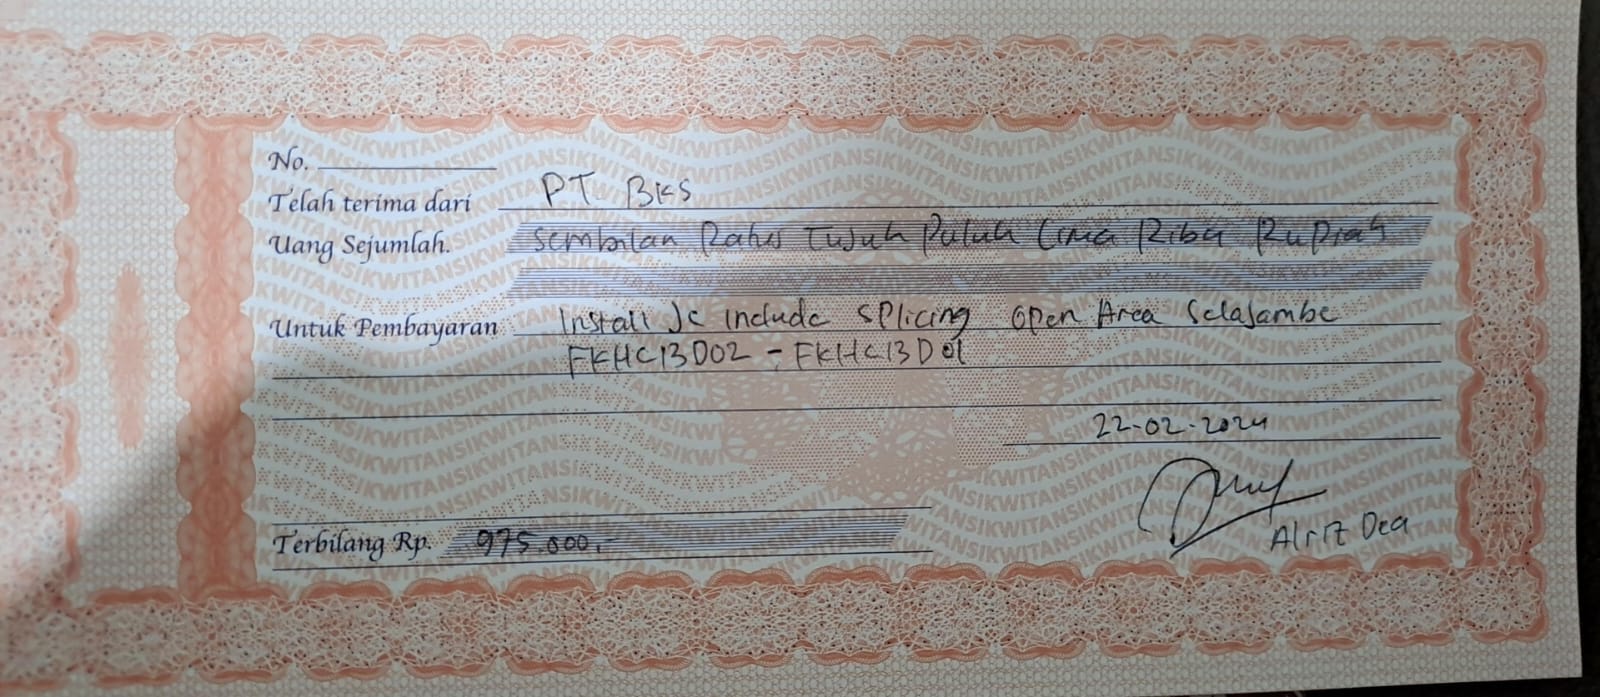 No.
Telah terima dari PT. BKS
Uang Sejumlah. Sembilan Ratus Tujuh Puluh Lima Ribu Rupiah
Untuk Pembayaran Install Jc include splicing open Area Selajambe
FKHC13D02 - FKHC13D01
22-02-2024
Terbilang Rp. 975.000,-
Alriz Dea